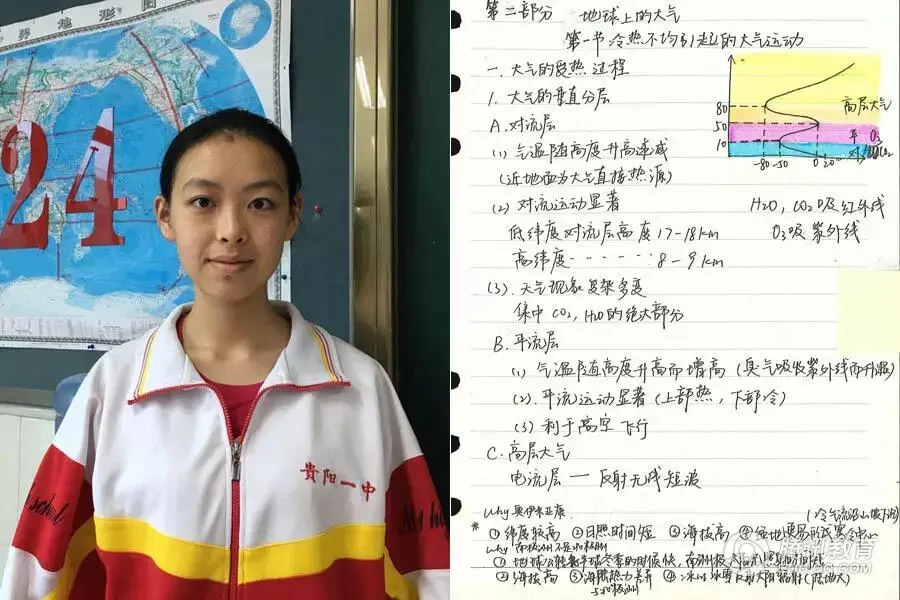 界地形图
24
貴阳一中
第二部分 地球上的大气
第一节 冷热不均引起的大气运动
一. 大气的受热过程
1. 大气的垂直分层
A. 对流层
(1) 气温随高度升高递减
(近地面为大气直接热源)
(2) 对流运动显著
低纬度对流层高度 17-18km
高纬度 - - - - - - 8-9km
(3). 天气现象复杂多变
集中 CO2, H2O 的绝大部分
B. 平流层
(1) 气温随高度升高而增高 (臭气吸收紫外线而升温)
(2). 平流运动显著 (上部热, 下部冷)
(3) 利于高空飞行
C. 高层大气
电流层 — 反射无线短波
80
50
10
-80 -50 0 20
高层大气
平 O3
对
H2O, CO2 吸红外线
O3 吸紫外线
Why
* ① 纬度较高 ② 日照时间短 ③ 海拔高 ④
Why
② 海拔高 ③ 海陆热力差异 ④
腾讯教育